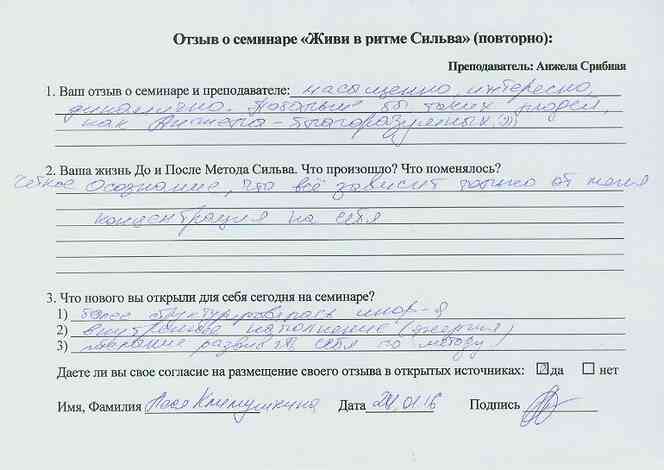 Отзыв о семинаре «Живи в ритме Сильва» (повторно):
Преподаватель: Анжела Срибная
1. Ваш отзыв о семинаре и преподавателе: насыщенно, интересно,
динамично. Побольше бы таких людей,
как Анжела - благоразумных )))
2. Ваша жизнь До и После Метода Сильва. Что произошло? Что поменялось?
Четкое осознание, что всё зависит только от меня
концентрация на себя
3. Что нового вы открыли для себя сегодня на семинаре?
1) более структурировалась инф-я
2) внутреннее наполнение (энергия)
3) развивать себя по методу
Даете ли вы свое согласие на размещение своего отзыва в открытых источниках: да нет
Имя, Фамилия Дата 24.01.16 Подпись